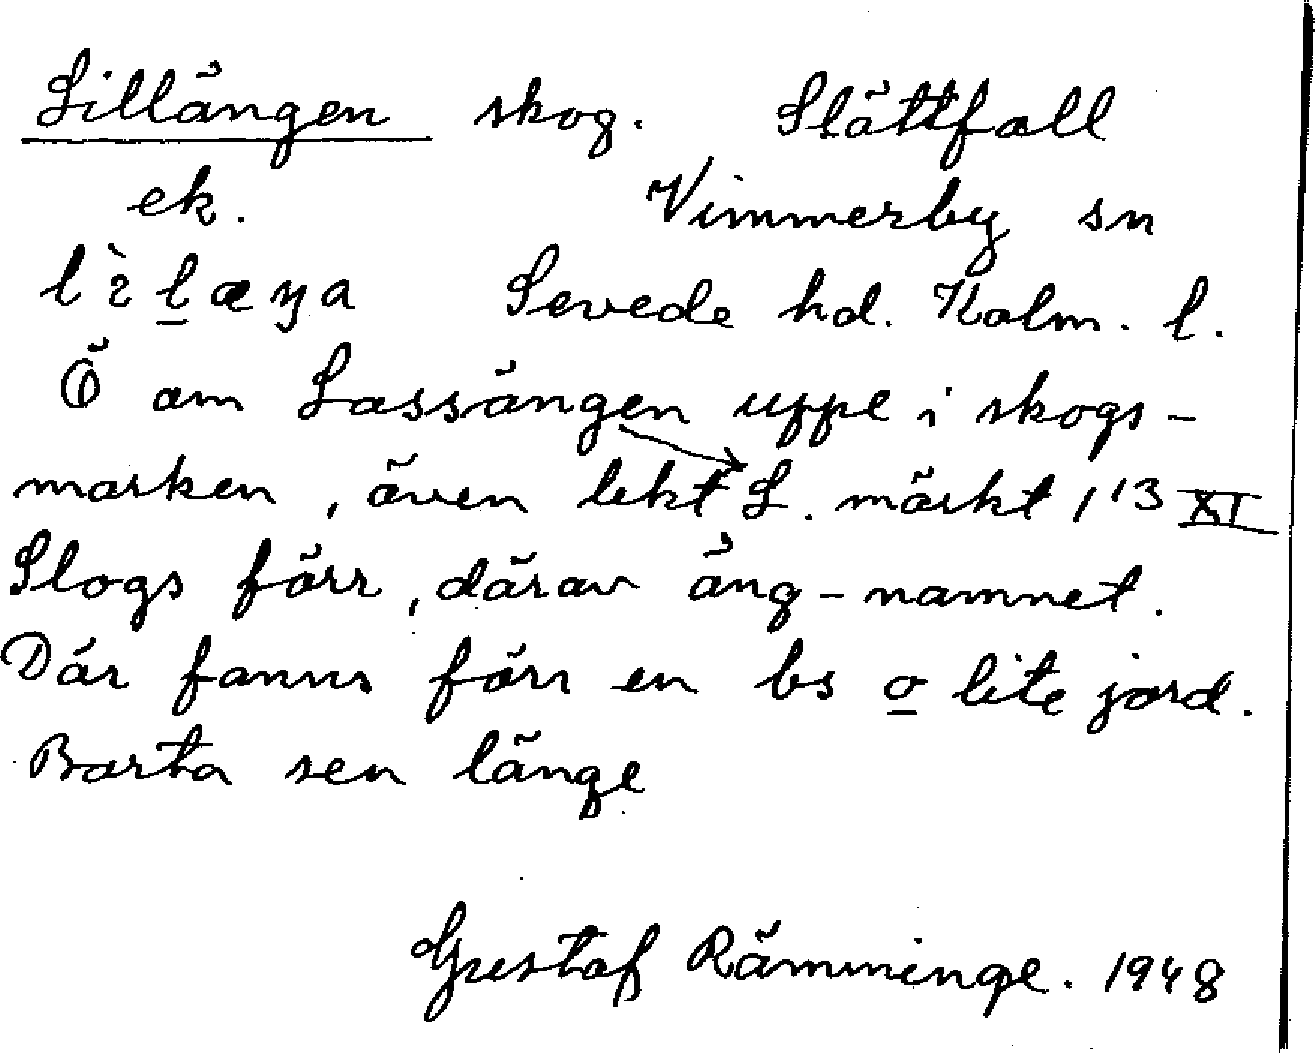 Lillängen skog. Slättfall
ek. Vimmerby sn
lɩ̀l̠æŋa Sevede hd. Kalm. l.
Ö om Lassängen uppe i skogs-
marken, även lekt L. märkt 1'3 XI
Slogs förr, därav äng-namnet.
Där fanns förr en bs o lite jord.
Borta sen länge
Gustaf Rämminge. 1948